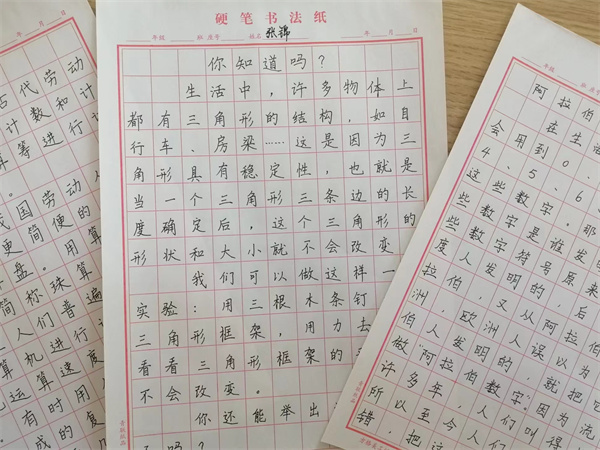 年 月 日
古代劳动
计数和计
算筹进行计
我国劳动人
更简便的
盘。用算
简称珠算
人们普遍
算机进行
比运算速度
有时用
成的复
硬笔书法纸
年级 班 座号 姓名 张锦 年 月 日
你知道吗?
生活中,许多物体上
都有三角形的结构,如自
行车、房梁……这是因为三
角形具有稳定性,也就是
当一个三角形三条边的长
度确定后,这个三角形的
形状和大小就不会改变
我们可以做这样一
实验:用三根木条钉
三角形框架,用力去
看看三角形框架的
不会改变。
你还能举出
吗?
年级 班 座号
阿拉伯
在生活
会用到0、
4、5、6、
这些数字。那
些数字是谁发明
数字符号原来
度人发明的,后
拉伯,又从阿拉伯
洲,欧洲人误以为
伯人发明的,就把它
做“阿拉伯数字”因为流
许多年,人们叫得
所以至今人们
错,把这